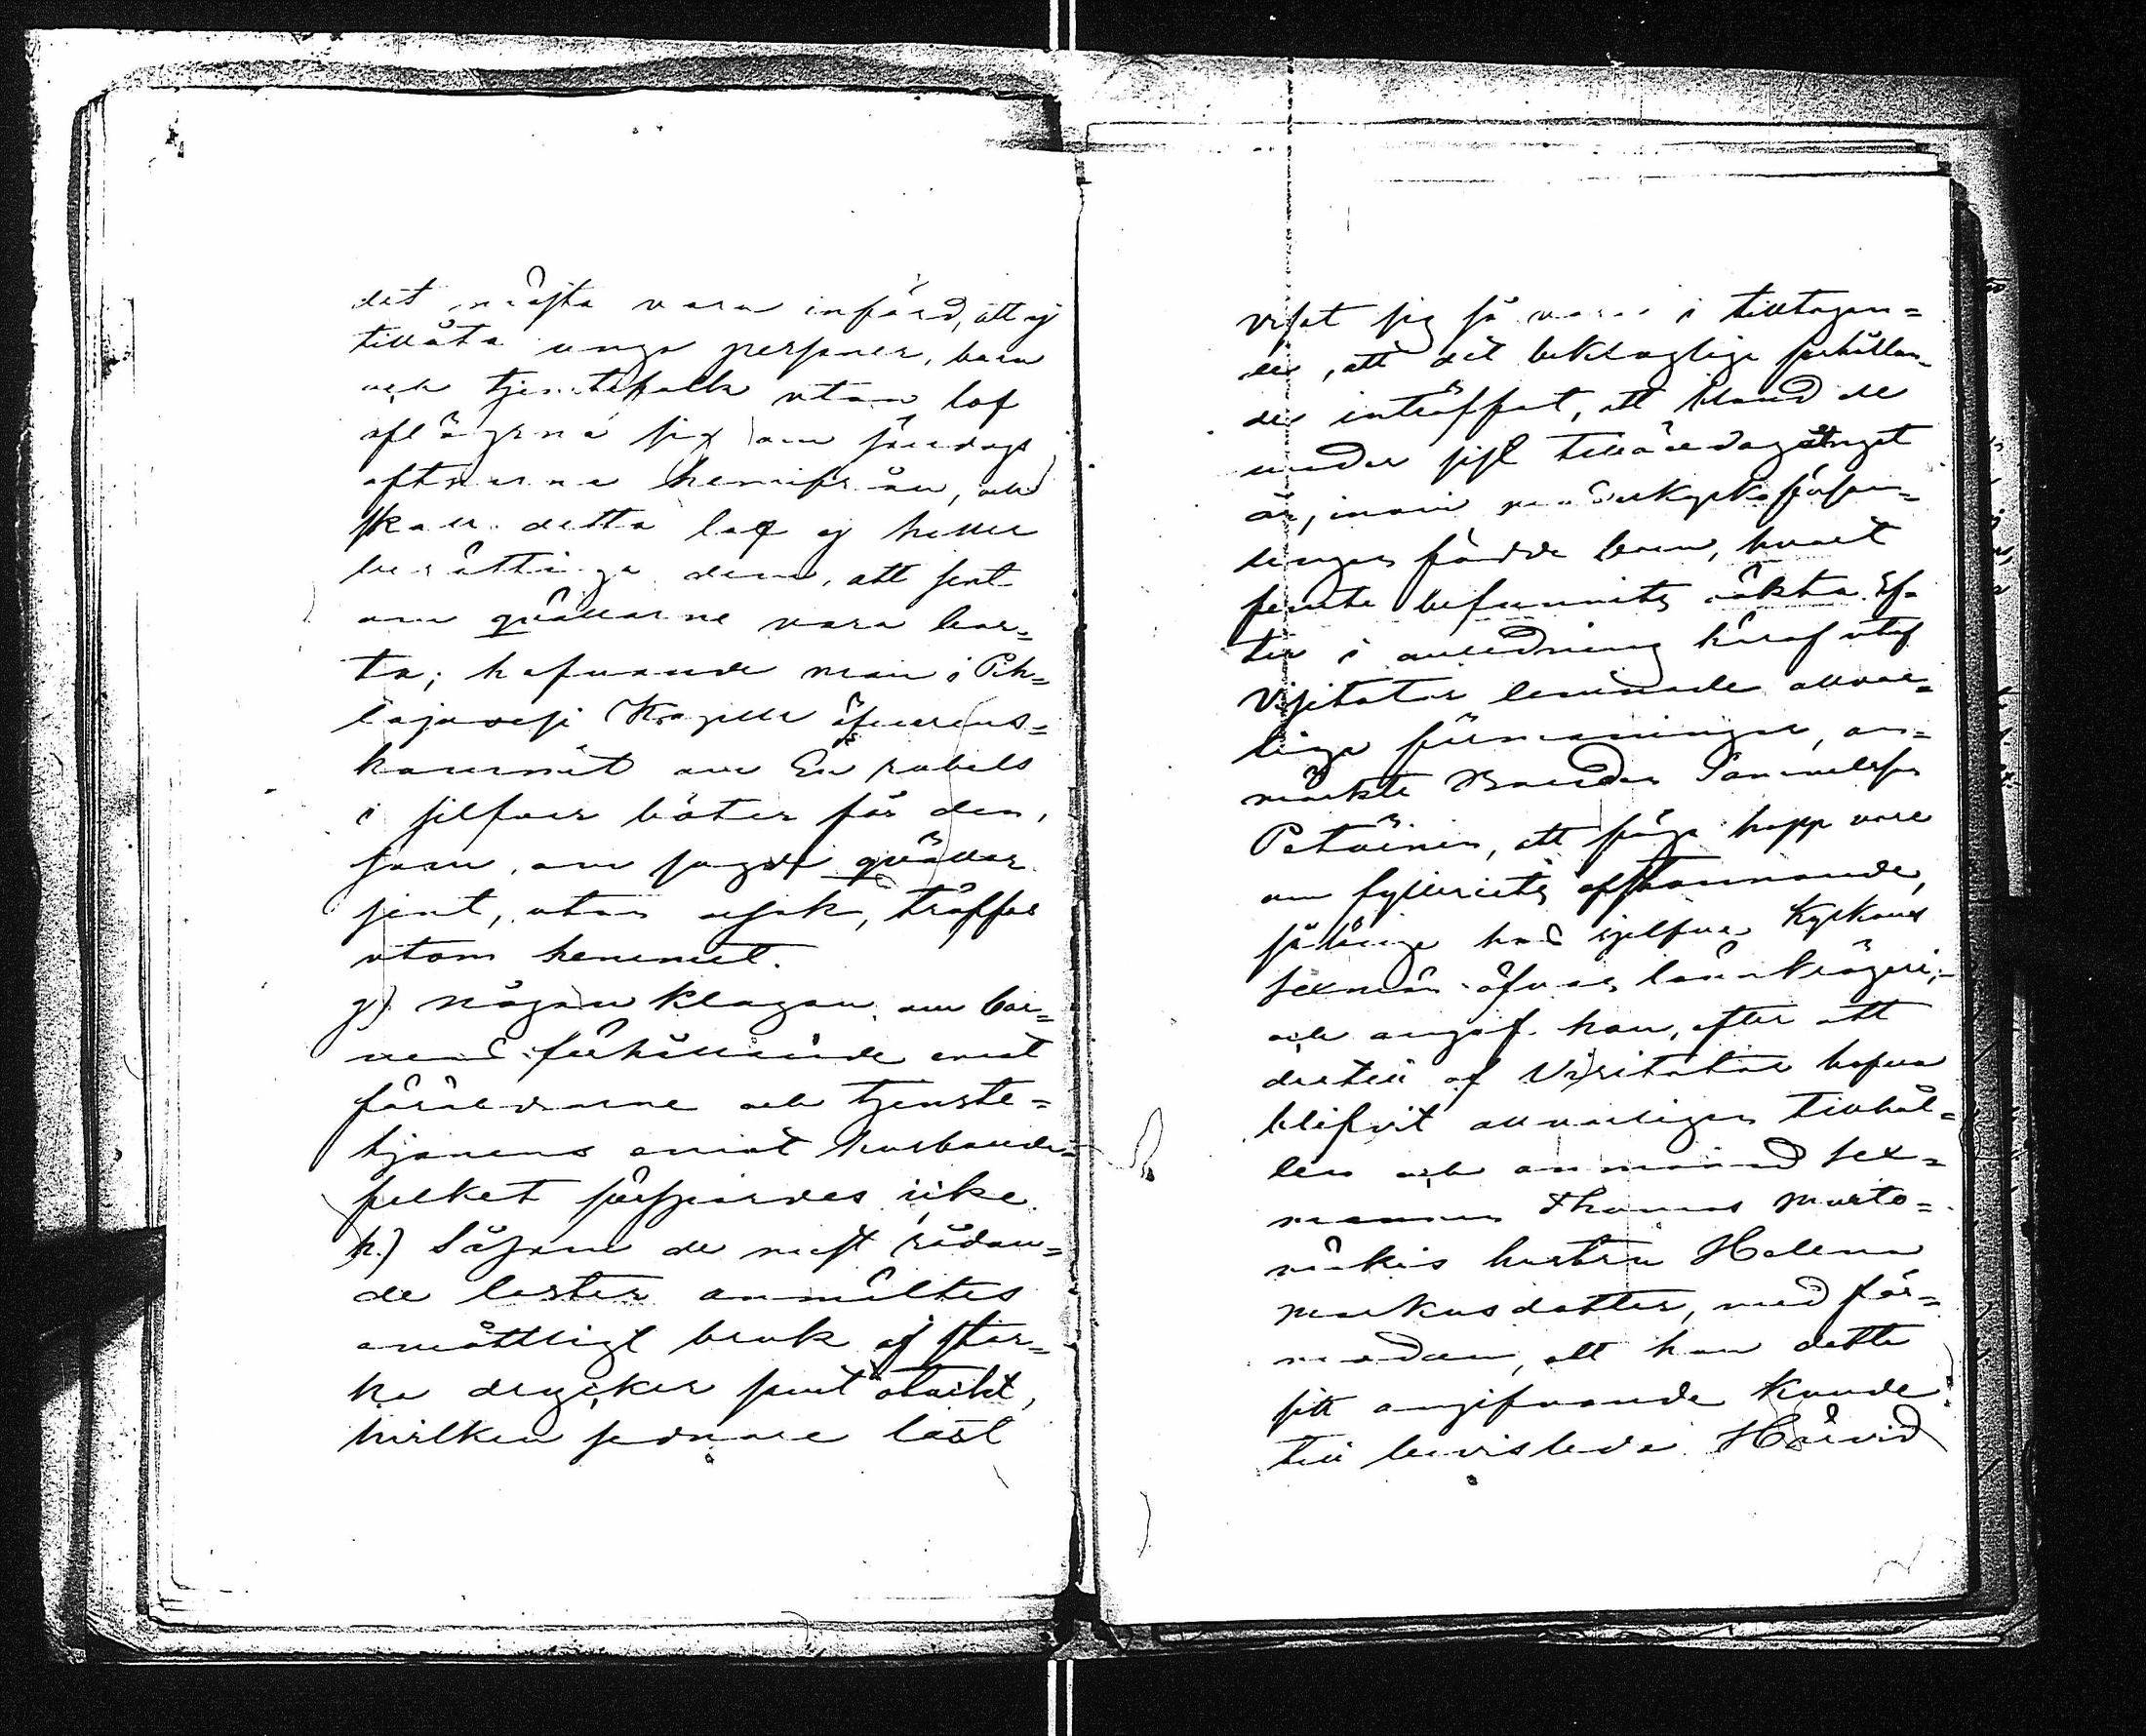 det måsta vara infördt, att ej
tillåta unga personer, barn
och tjenstefolk utan lof
aflägsna sig om söndags
aftnarna hemifrån, och
skall detta lof ej heller
berättiga dem, att sent
om qvällarne vara bor=
ta; hafvande man i Pih=
lajavesi Kapell öfverens=
kommit om En rubels
i silfver böter för den,
som, om sagde qvällar
sent, utan orsak, träffas
utom hemmet.
g) Någon klagan om bar=
nens förhållande emot
föräldrarne och tjenste=
hjonens emot husbonde=
folket förspordes icke.
h.) Såsom de mest rådan=
de laster anmältes
omåttligt bruk af star=
ka drycker samt otukt,
hvilken sednare last
visat sig så vara i tilltagan=
de, att det bekloglige förhållan=
de inträffat, att bland de
under sist tilländagångna
år, inom moderkyrkoförsam=
lingen födde barn, hvart
femte befunnits oäkta. Ef=
ter i anledning häraf utaf
Visitator lemnade allvar=
liga förmaningar, an=
märkte Bonden Sammelsson
Petäinen, att föga hopp vore
om fylleriets afstannande,
så länge hos sjelfva Kyrkans
sexmän öfvas lönnkrögeri,
och angaf han, efter att
dertill af Visitator hafva
blifvit allvarligen tillhål=
len och anmanad sex=
mannen Thomas Marto=
mäkis hustru Helena
Markusdotter, med för=
modan, att han detta
sitt angifvande kunde
till bevisleda. Härvid